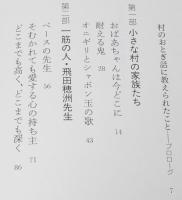 村のおとぎ話に教えられたこと――プロローグ 7
第一部 小さな村の家族たち
おばあちゃんは今どこに 14
耐える鬼 28
オニギリとシャボン玉の歌 43
第二部 一筋の人・飛田穂洲先生
ベースの先生 56
そむかれても愛する心の持ち主 71
どこまでも高く、どこまでも深く 86